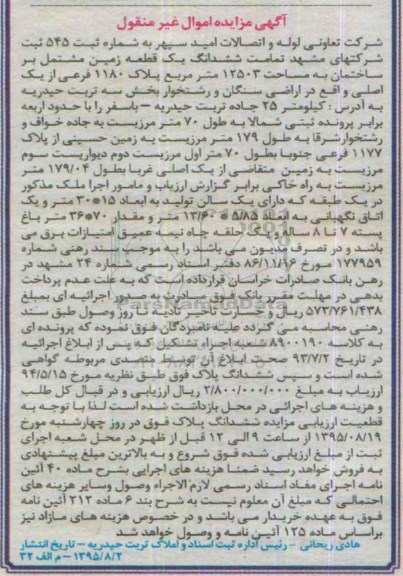 آگهی مزایده اموال غیر منقول
شرکت تعاونی لوله و اتصالات امید سپهر به شماره ثبت ۵۴۵ ثبت
شرکتهای مشهد تمامت ششدانگ یک قطعه زمین مشتمل بر
ساختمان به مساحت ۱۲۵۰۳ متر مربع پلاک ۱۱۸۰ فرعی از یک
اصلی واقع در اراضی سنگان و رشتخوار بخش سه تربت حیدریه
به آدرس : کیلومتر ۲۵ جاده تربت حیدریه – باسفر را با حدود اربعه
برابر پرونده ثبتی شمالا به طول ۷۰ متر مرزیست به جاده خواف و
رشتخوارشرقا به طول ۱۷۹ متر مرزیست به زمین حسینی از پلاک
۱۱۷۷ فرعی جنوبا بطول ۷۰ متر اول مرزیست دوم دیواریست سوم
مرزیست به زمین متقاضی از یک اصلی غربا بطول ۱۷۹/۰۴ متر
مرزیست به راه خاکی برابر گزارش ارزیاب و مامور اجرا ملک مذکور
در یک طبقه که دارای یک سالن تولید به ابعاد ۱۵*۳۰ متر و یک
اتاق نگهبانی به ابعاد ۵/۸۵ * ۱۳/۶۰ متر و مقدار ۷۰*۳۶ متر باغ
پسته ۷ تا ۸ ساله و یک حلقه چاه نیمه عمیق امتیازات برق می
باشد و در تصرف مدیون می باشد را به موجب سند رهنی شماره
۱۷۷۹۵۹ مورخ ۸۶/۱۱/۹۶ دفتر اسناد رسمی شماره ۲۴ مشهد در
رهن بانک صادرات خراسان قرارداده است که به علت عدم پرداخت
بدهی در مهلت مقرر بانک فوق مبادرت به صدور اجرائیه ای بمبلغ
۵۷۳/۷۶۱/۴۳۸ ریال و خسارت تاخیر تادیه تا روز وصول طبق سند
رهنی محاسبه می گردد علیه نامبردگان فوق نموده که پرونده ای
به کلاسه ۸۹۰۰۱۹۰ شعبه اجراء تشکیل که پس از ابلاغ اجرائیه
در تاریخ ۹۳/۷/۲ صحت ابلاغ آن توسط متصدی مربوطه گواهی
شده است و سپس ششدانگ پلاک فوق طبق نظریه مورخ ۹۴/۵/۱۵
ارزیاب به مبلغ ۲/۸۰۰/۰۰۰/۰۰۰ ریال ارزیابی و در قبال کل طلب
و هزینه های اجرائی در محل بازداشت شده است لذا با توجه به
قطعیت ارزیابی مزایده ششدانگ پلاک فوق در روز چهارشنبه مورخ
۱۳۹۵/۰۸/۱۹ از ساعت ۹ الی ۱۲ قبل از ظهر در محل شعبه اجرای
ثبت از مبلغ ارزیابی شده فوق شروع و به بالاترین مبلغ پیشنهادی
به فروش خواهد رسید ضمنا هزینه های اجرایی بشرح ماده ۴۰ آئین
نامه اجرای مفاد اسناد رسمی لازم الاجراء وصول وسایر هزینه های
احتمالی که مبلغ آن معلوم نیست به شرح بند ۶ ماده ۲۱۲ آئین نامه
فوق به عهده خریدار می باشد و در خصوص هزینه های مازاد نیز
براساس ماده ۱۲۵ آئین نامه و وصول خواهد شد
هادی ریحانی – رئیس اداره ثبت اسناد و املاک تربت حیدریه – تاریخ انتشار
۱۳۹۵/۸/۲ – م الف ۳۲